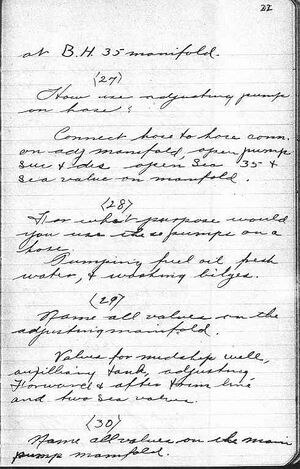 22
at B.H. 35 manifold.
(27)
How use adjusting pump
on hose?
Connect hose to hose conn.
on adj manifold, open pump
suc & dis open Sea 35 &
Sea valve on manifold.
(28)
For what purpose would
you use the pumps on a
hose.
Pumping fuel oil fresh
water, & washing bilges.
(29)
Name all valves on the
adjusting manifold.
Valves for midship well,
auxilliary tank, adjusting
Forward & after trim line
and two Sea valves.
(30)
Name all valves on the main
pump manifold.